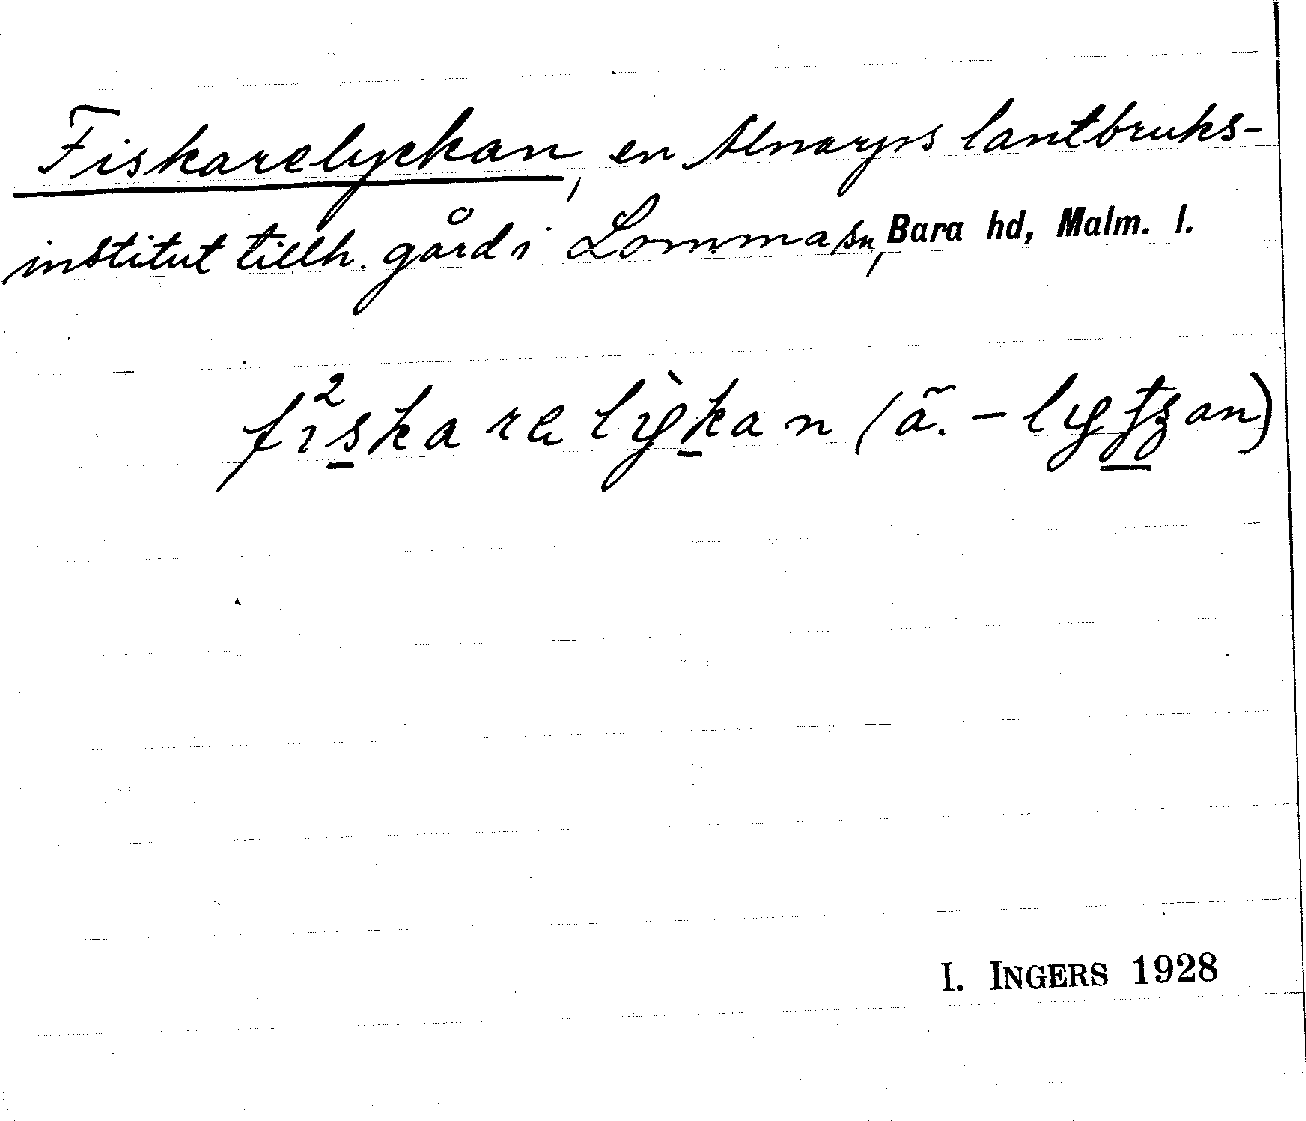 Fiskarelyckan, en Alnarps lantbruks-
institut tillh. gård i Lomma sn, Bara hd, Malm. l.
fi²skarelỳkan (ä. - lyțșan)
I. INGERS 1928